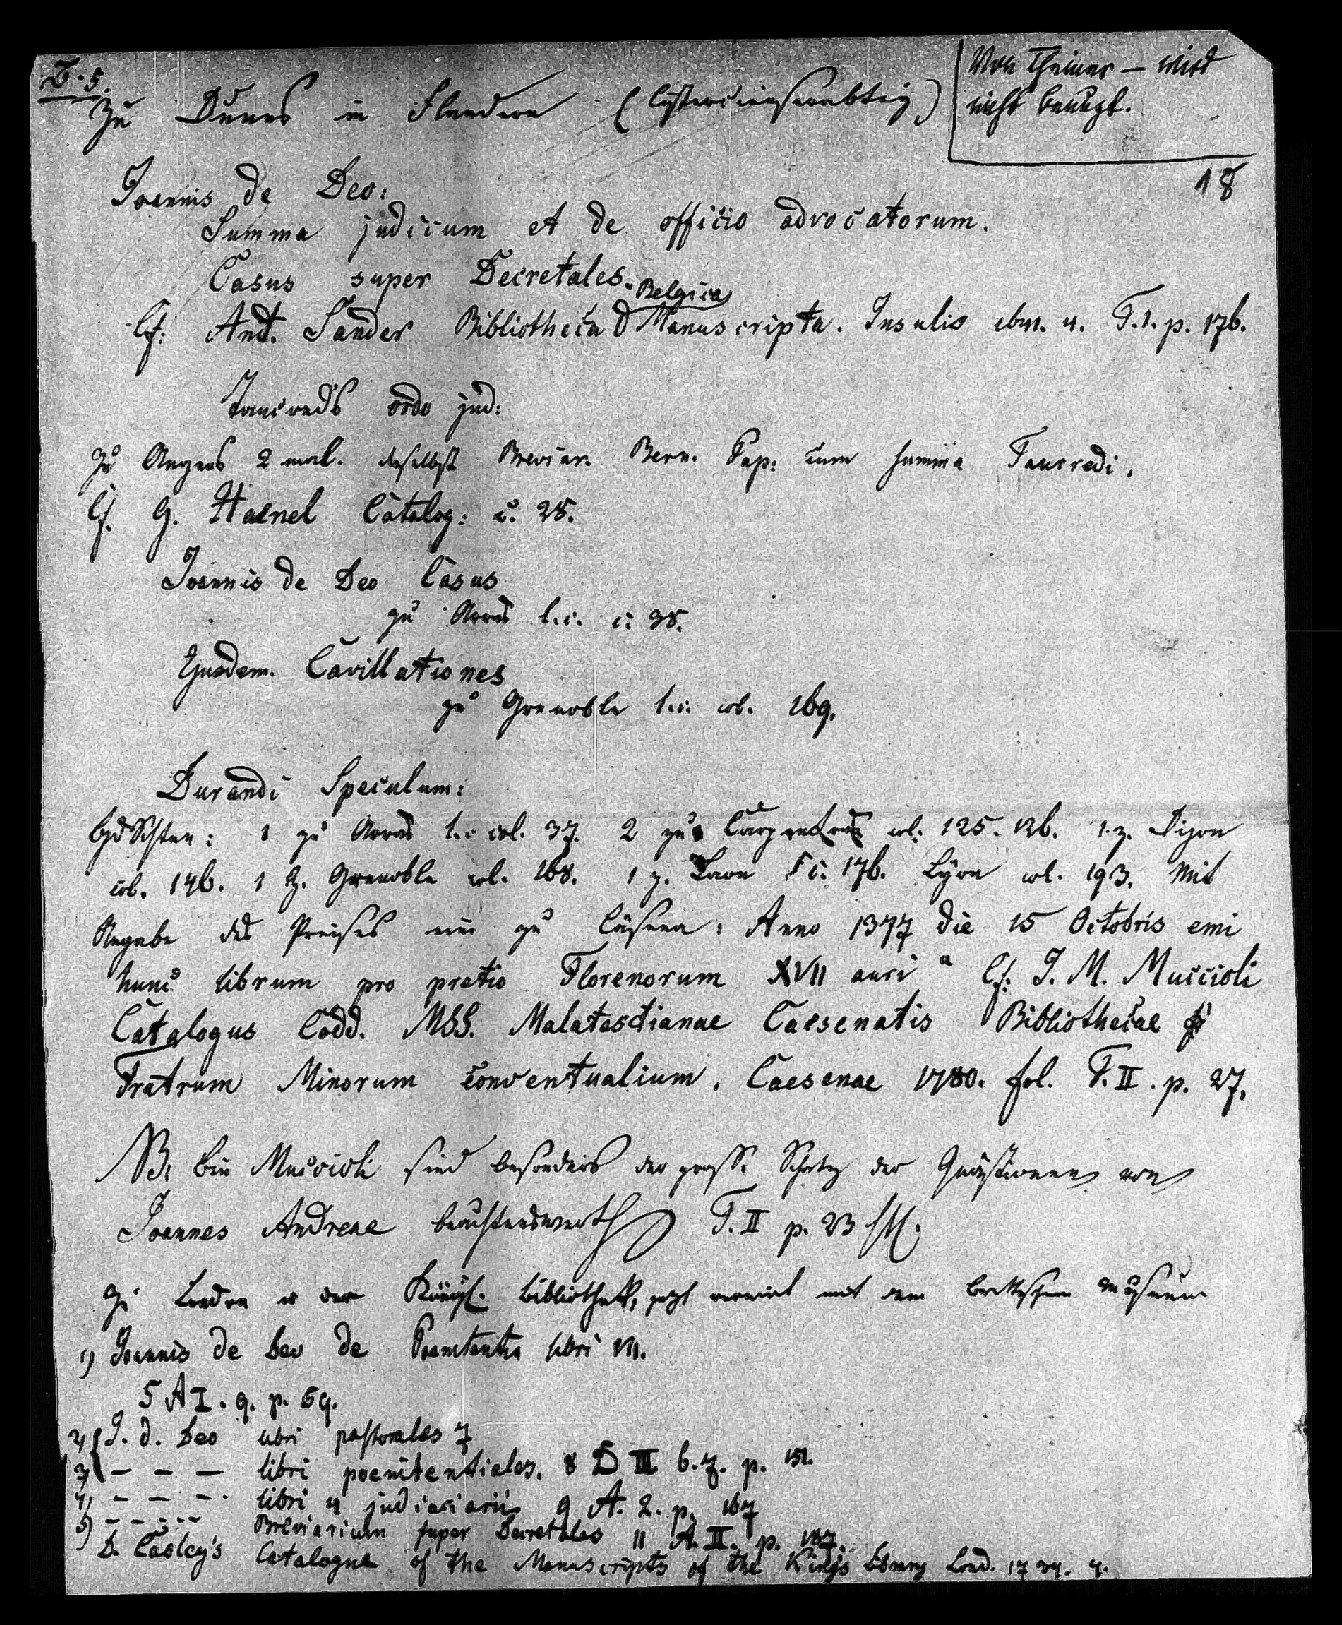 Z. 5.
Von Theiner – wird
nicht benuzt.
Zu Dunes in Flandern (Cistercienserabtey)
18
Joannis de Deo:
Summa judicum et de officio advocatorum.
Casus super Decretales.
Cf. Ant. Sander Bibliotheca Belgica Manuscripta. Insulis 1641. 4. T. 1. p. 176.
Tancreds ordo jud:
Zu Angers 2 mal. daselbst Breviar. Bern. Pap: cum summa Tancredi.
Cf. G. Haenel Catalog: c. 28.
Joannis de Deo Casus
zu Arras l.c. c. 38.
Ejusdem. Cavillationes
zu Grenoble l.c. col. 169.
Durandi Speculum:
Hdschften: 1 zu Arras l.c. col. 37. 2 zu Carpentras col. 125. 126. 1 z. Dijon
col. 146. 1 z. Grenoble col. 168. 1 z. Laon l c. 176. Lyon col. 193. Mit
Angabe des Preises eine zu Cäsena: Anno 1377 die 15 Octobris emi
hunc librum pro pretio Florenorum XVII auri" Cf. J. M. Muccioli
Catalogus Codd. MSS. Malatestianae Caesenatis Bibliothecae
Fratrum Minorum Conventualium. Caesenae 1780. fol. T. II. p. 27.
NB. bei Muccioli sind besonders der große Schatz der Quästionen von
Joannes Andreae beachtenswerth T. II p. 23
Zu London in der Königl. Bibliothek, jezt vereint mit dem brittischen Museum
1) Joannis de Deo de Poenitentia libri VII.
5 A I. 9. p. 69.
2) J. d. Deo libri pastorales 7
3) – – – libri poenitentiales. 8 D III b. 7. p. 151.
4) – – – libri 4 judiciarii 9 A. 2. p. 167
5) – – – – – Breviarium super Decretales 11 A. II. p. 187.
D. Casley's Catalogue of the Manuscripts of the King's Library Lond. 1734. 4.